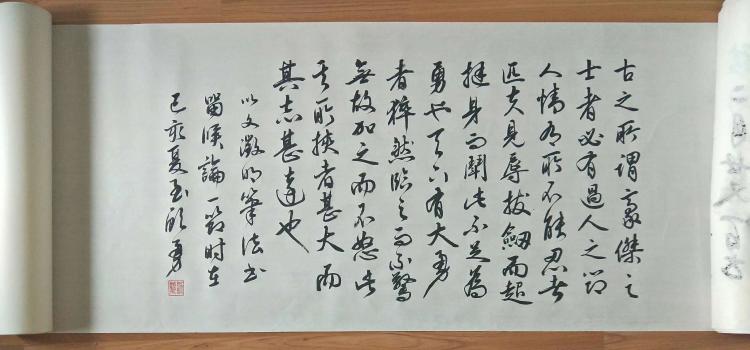 古之所謂豪傑之
士者必有過人之節
人情有所不能忍者
匹夫見辱拔劍而起
挺身而鬭此不足為
勇也天下有大勇
者猝然臨之而不驚
無故加之而不怒此
其所挾者甚大而
其志甚遠也
以文徵明筆法書
留侯論一節時在
己亥夏玉
勇